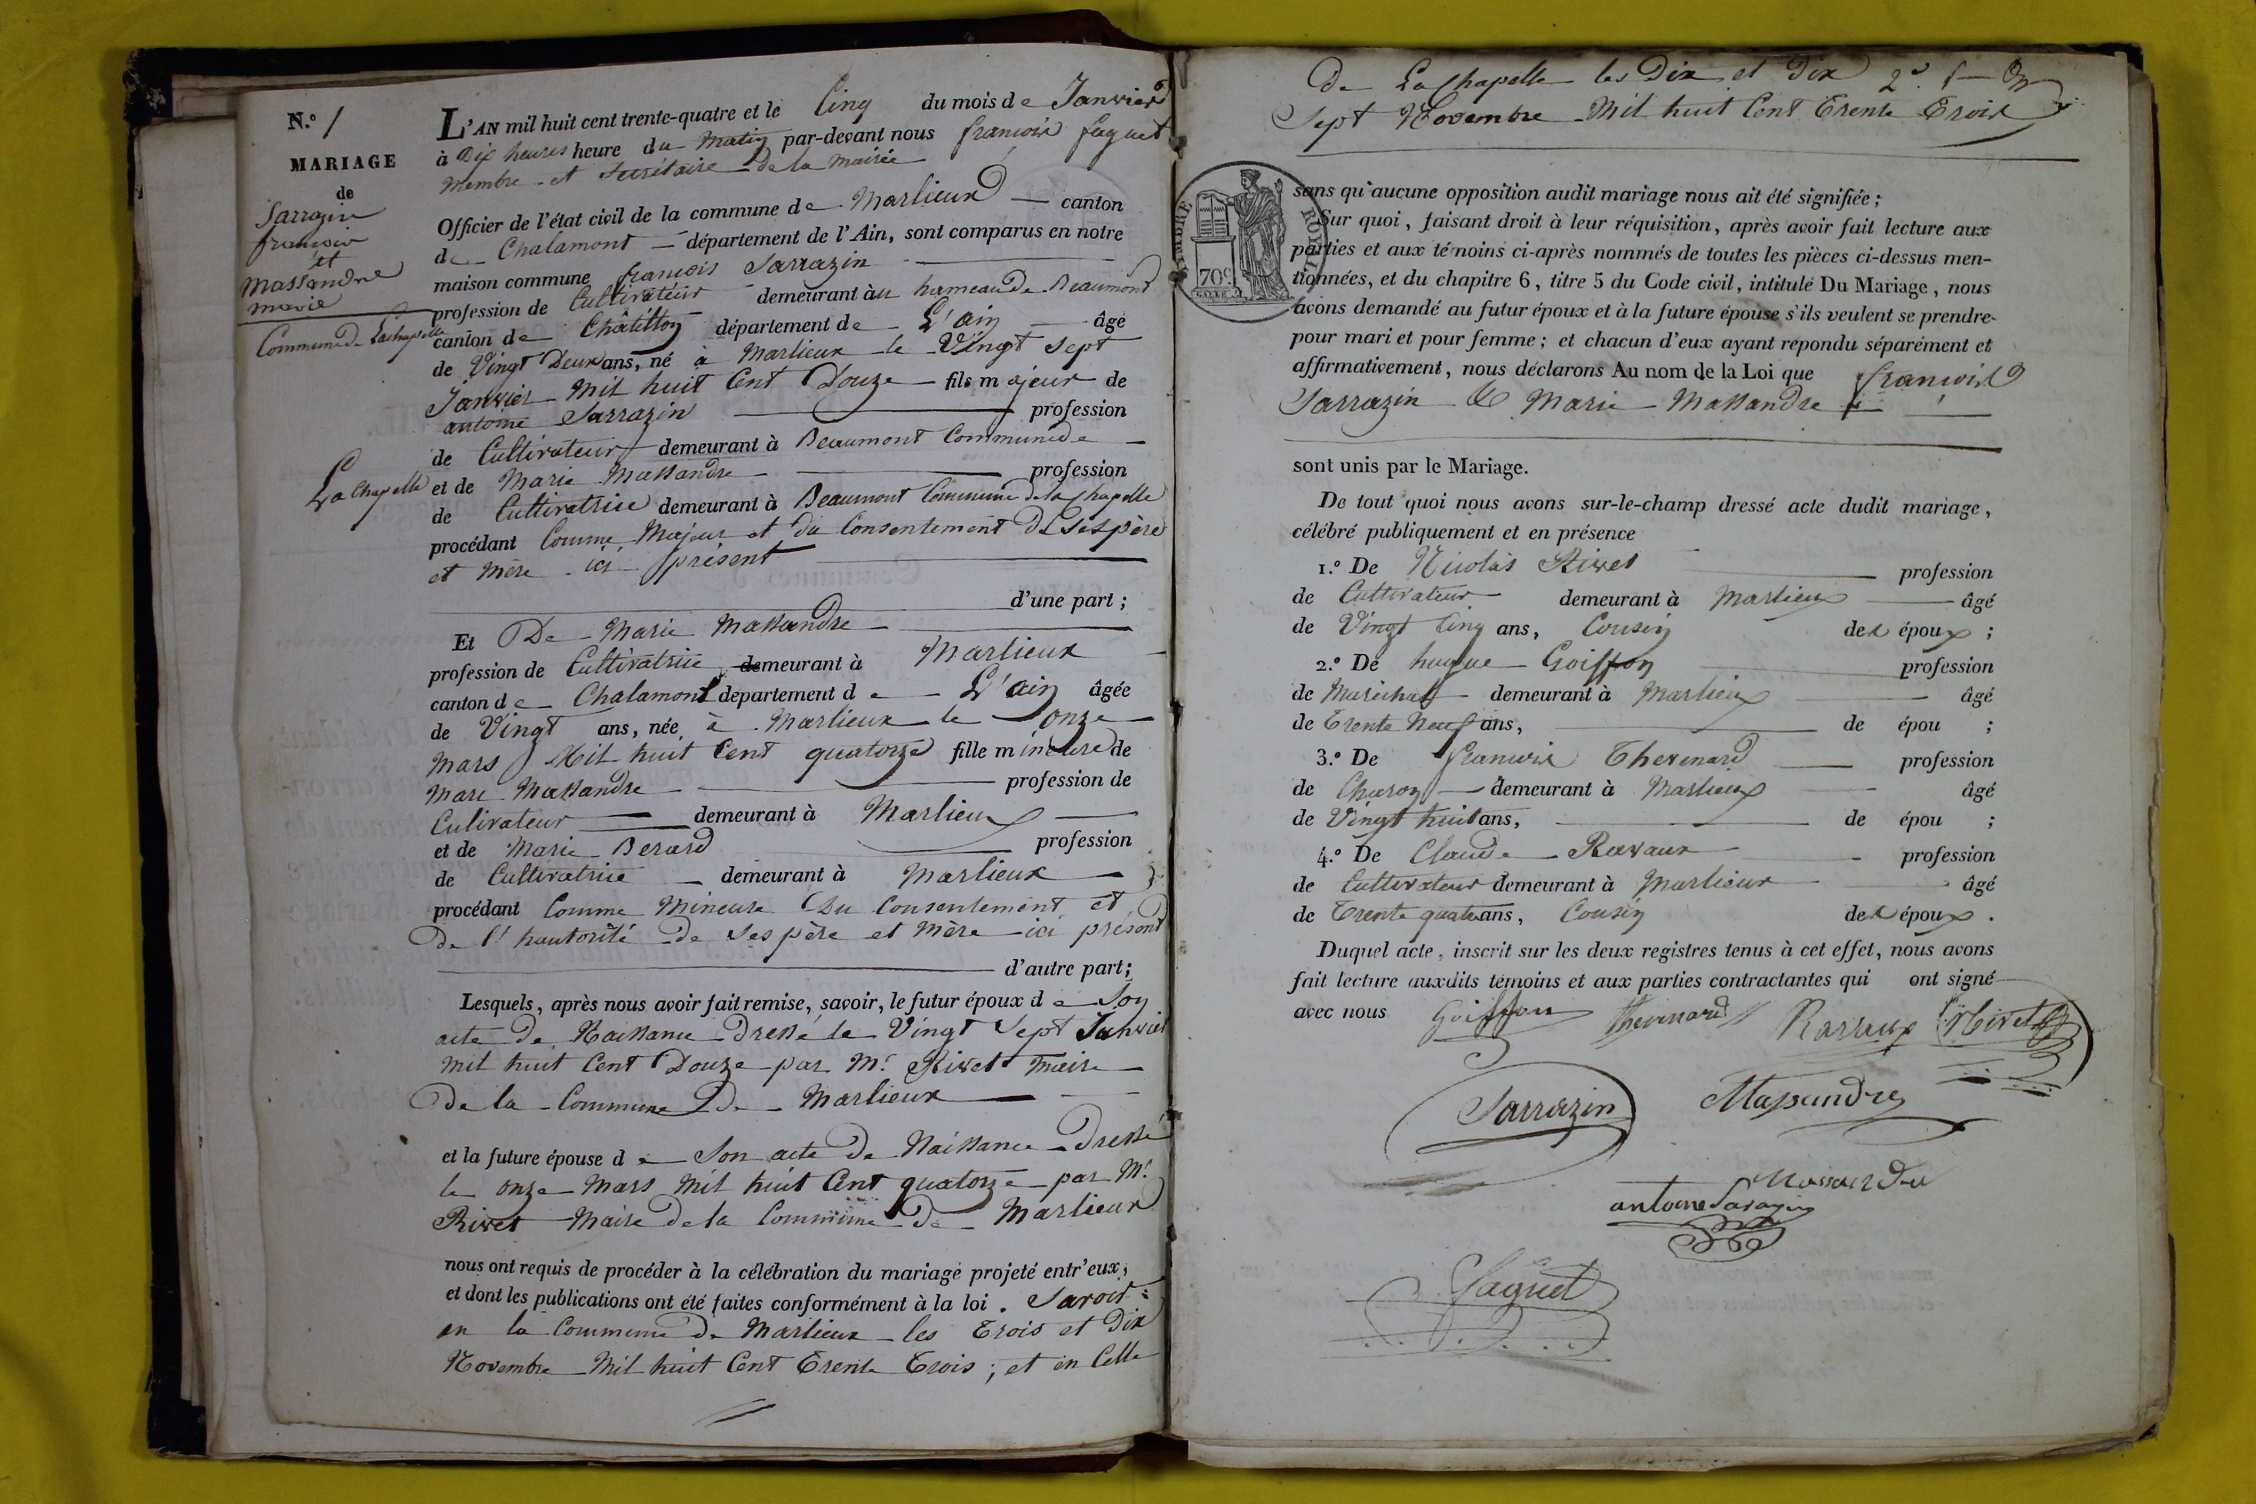 N.° 1
MARIAGE
de
Sarrazin
françois
et
Massandre
marie
Commune de Lachapelle
La Chapelle
L'AN mil huit cent trente-quatre et le Cinq du mois de Janvier
à Dix heures heure du Matin par-devant nous françois faguet
Membre et Secrétaire de la Mairie
Officier de l'état civil de la commune de Marlieux canton
de Chalamont département de l'Ain, sont comparus en notre
maison commune françois Sarrazin
profession de Cultivateur demeurant àu hameau de Beaumont
canton de Châtillon département de L'ain âgé
de Vingt Deux ans, né à Marlieux le Vingt Sept
Janvier Mil huit Cent Douze fils majeur de
antoine Sarrazin profession
de Cultivateur demeurant à Beaumont Commune de
et de Marie Massandre profession
de Cultivatrice demeurant à Beaumont Commune de la Chapelle
procédant Comme Majeur et du Consentement De Ses père
et Mère ici présent
d'une part ;
Et De Marie Massandre
profession de Cultivatrice demeurant à Marlieux
canton de Chalamont département de L'ain âgée
de Vingt ans, née à Marlieux le onze
Mars Mil huit Cent quatorze fille mineure de
Marc Massandre profession de
Culivateur demeurant à Marlieux
et de Marie Berard profession
de Cultivatrice demeurant à Marlieux
procédant Comme Mineure Du Consentement et
De l'hautorité de Ses père et Mère ici présent
d'autre part ;
Lesquels, après nous avoir fait remise, savoir, le futur époux de Son
acte De Naissance Dressé le Vingt Sept Janvier
Mil huit Cent Douze par Mr Rivet Maire
De la Commune De Marlieux
et la future épouse de Son acte De Naissance Dressé
le onze Mars Mil huit Cent quatorze par Mr
Rivet Maire De la Commune De Marlieux
nous ont requis de procéder à la célébration du mariage projeté entr'eux,
et dont les publications ont été faites conformément à la loi. Savoir :
en la Commune De Marlieux les Trois et Dix
Novembre Mil huit Cent Trente Trois ; et en Celle
De La Chapelle les Dix et Dix
Sept Novembre Mil huit Cent Trente Trois
TIMBRE ROYAL
70c
sans qu'aucune opposition audit mariage nous ait été signifiée ;
Sur quoi, faisant droit à leur réquisition, après avoir fait lecture aux
parties et aux témoins ci-après nommés de toutes les pièces ci-dessus men-
tionnées, et du chapitre 6, titre 5 du Code civil, intitulé Du Mariage, nous
avons demandé au futur époux et à la future épouse s'ils veulent se prendre
pour mari et pour femme ; et chacun d'eux ayant répondu séparément et
affirmativement, nous déclarons Au nom de la Loi que françois
Sarrazin & Marie Massandre
sont unis par le Mariage.
De tout quoi nous avons sur-le-champ dressé acte dudit mariage,
célébré publiquement et en présence
1.° De Nicolas Rivet profession
de Cultivateur demeurant à Marlieux âgé
de Vingt Cinq ans, Cousin des époux ;
2.° De hugue Goiffon profession
de Maréchal demeurant à Marlieux âgé
de Trente Neuf ans, de épou ;
3.° De françois Thevenard profession
de Charon demeurant à Marlieux âgé
de Vingt huit ans, de épou ;
4.° De Claude Ravaux profession
de Cultivateur demeurant à Marlieux âgé
de Trente quatre ans, Cousin des époux.
Duquel acte, inscrit sur les deux registres tenus à cet effet, nous avons
fait lecture auxdits témoins et aux parties contractantes qui ont signé
avec nous Goiffon Thevenard Ravaux Rivet
Sarrazin Massandre
Massandre
antoine Sarazin
Faguet